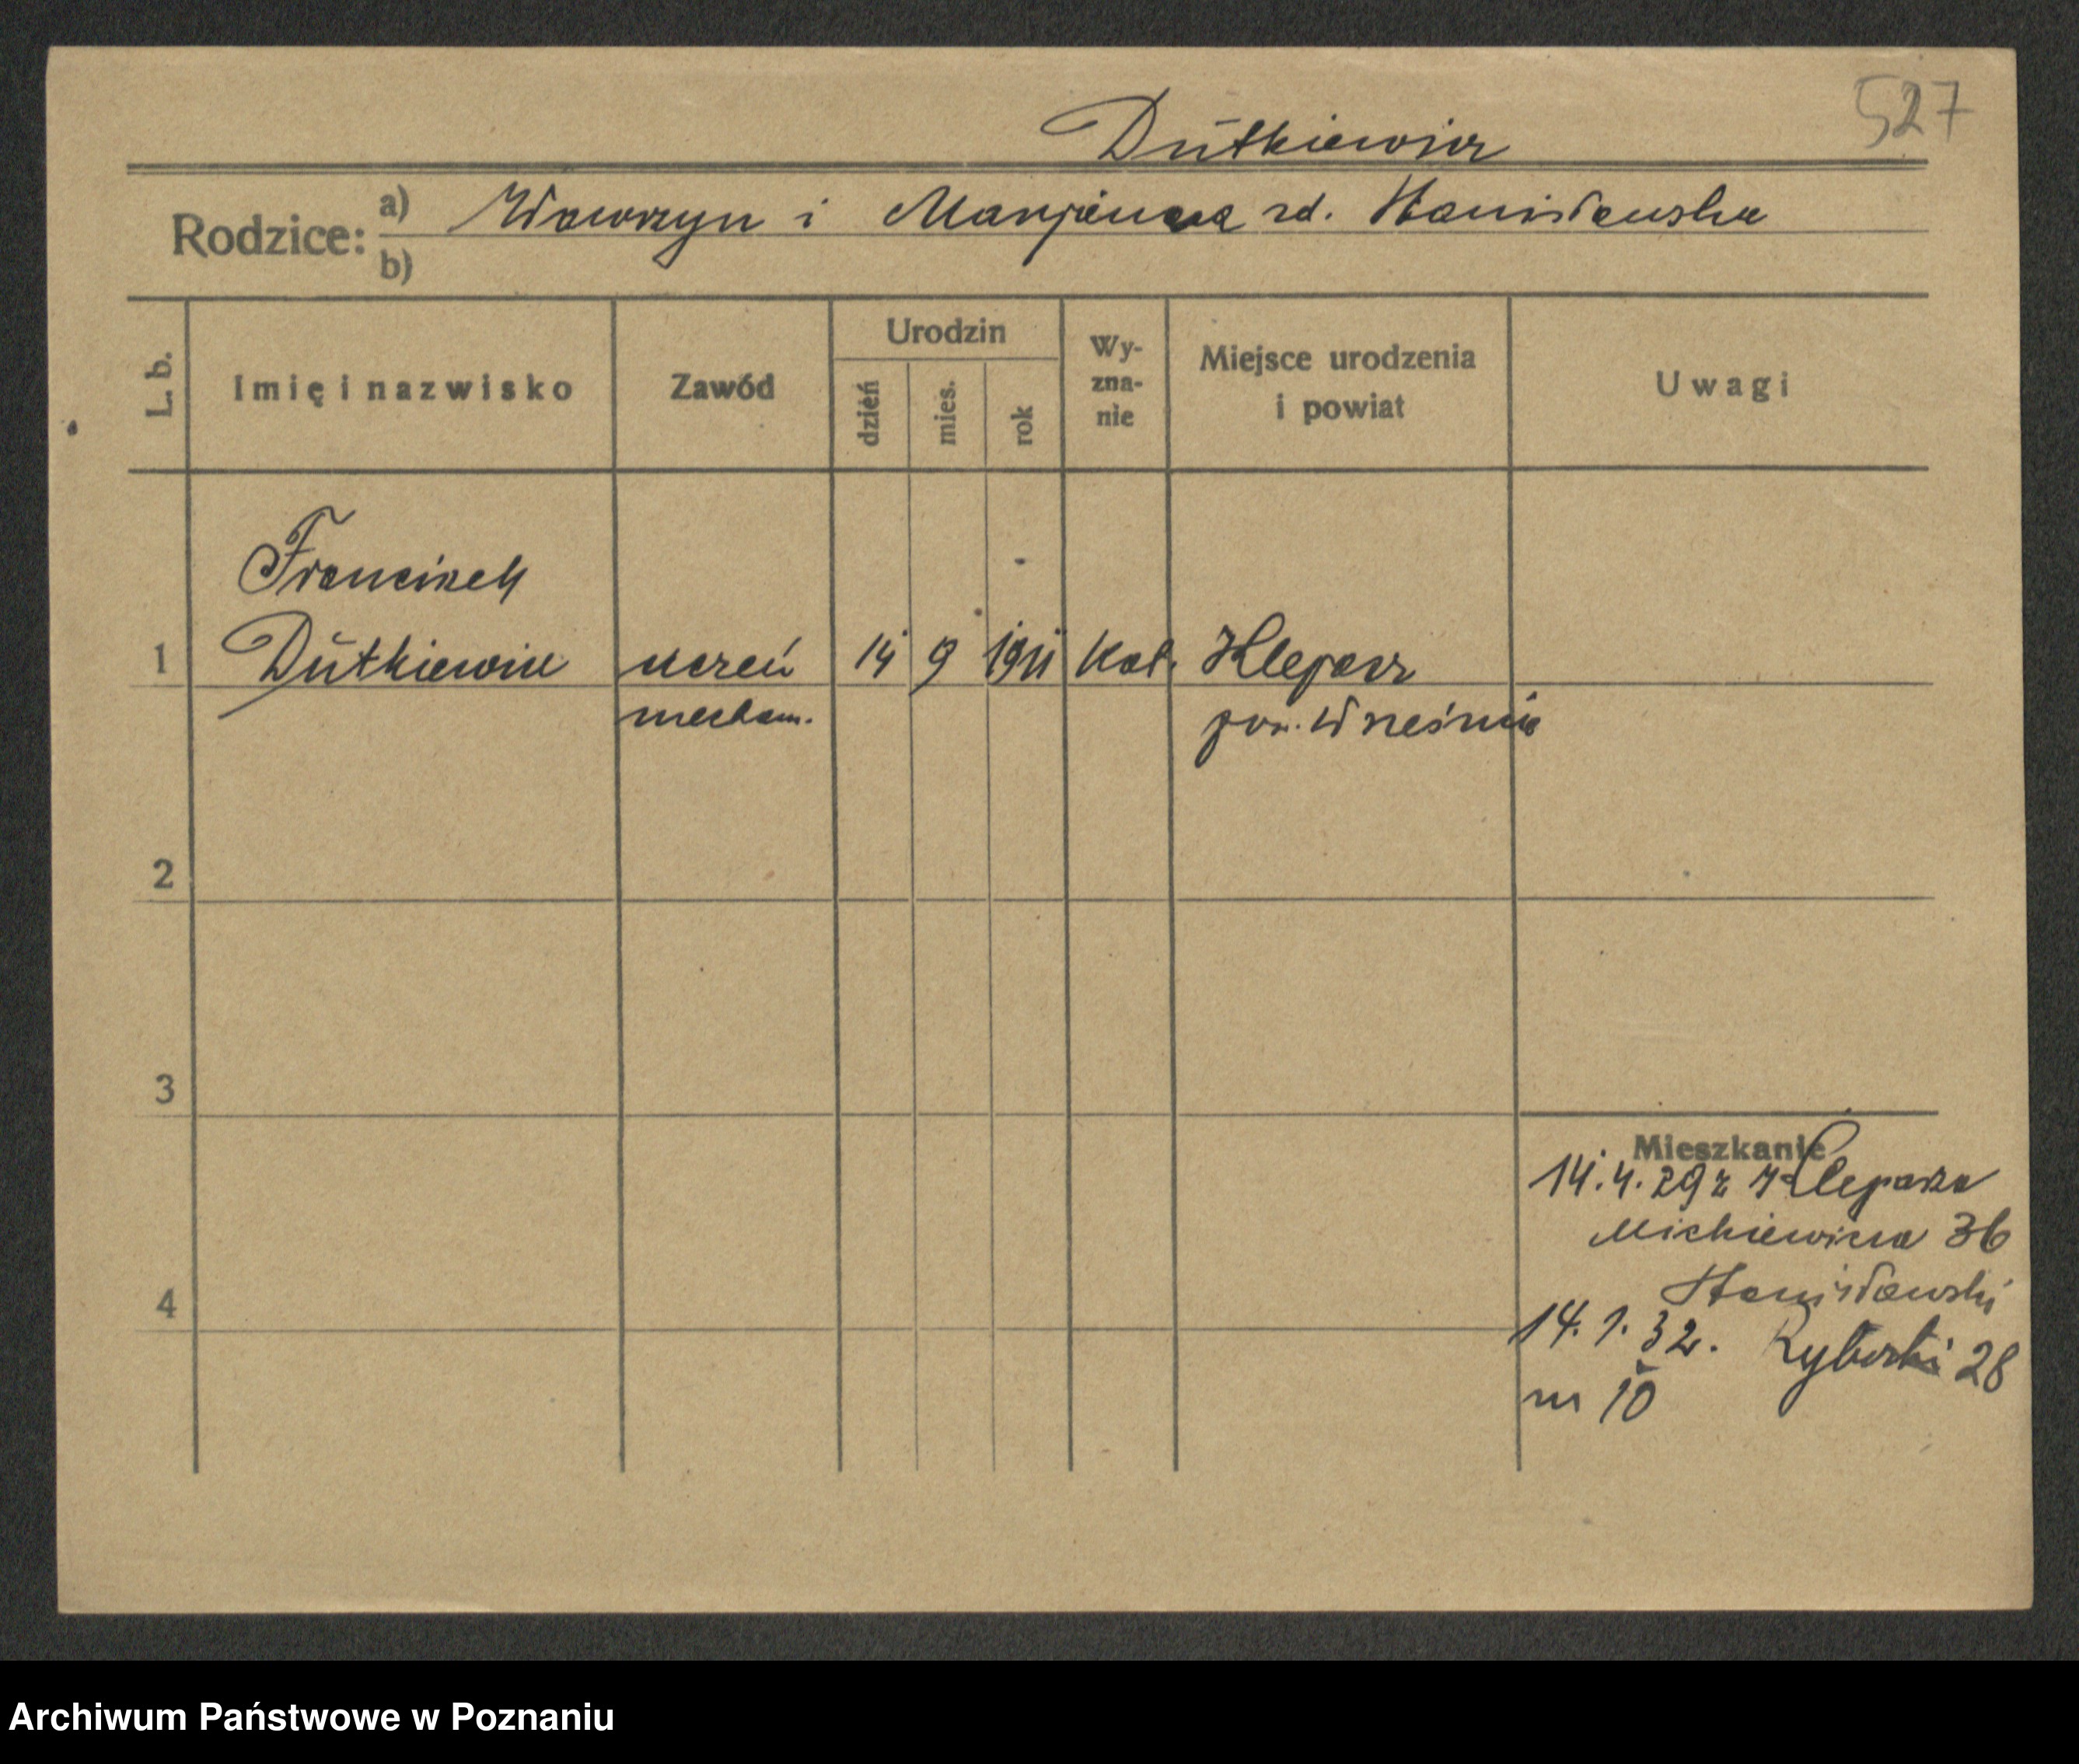 527
Dutkiewicz
Rodzice: a) Wawrzyn i Marjanna rd. Stanisławska
b)
L. b.
Imię i nazwisko
Zawód
Urodzin
dzień
mies.
rok
Wy-
zna-
nie
Miejsce urodzenia
i powiat
Uwagi
Franciszek
1 Dutkiewicz uczeń 14 9 1911 kat. Kleparz
mechan. pow. Września
2
3
Mieszkanie
14.4.29 z Kleparza
Mickiewicza 36
Stanisławski
4
14.1.32. 28
m 10
Archiwum Państwowe w Poznaniu